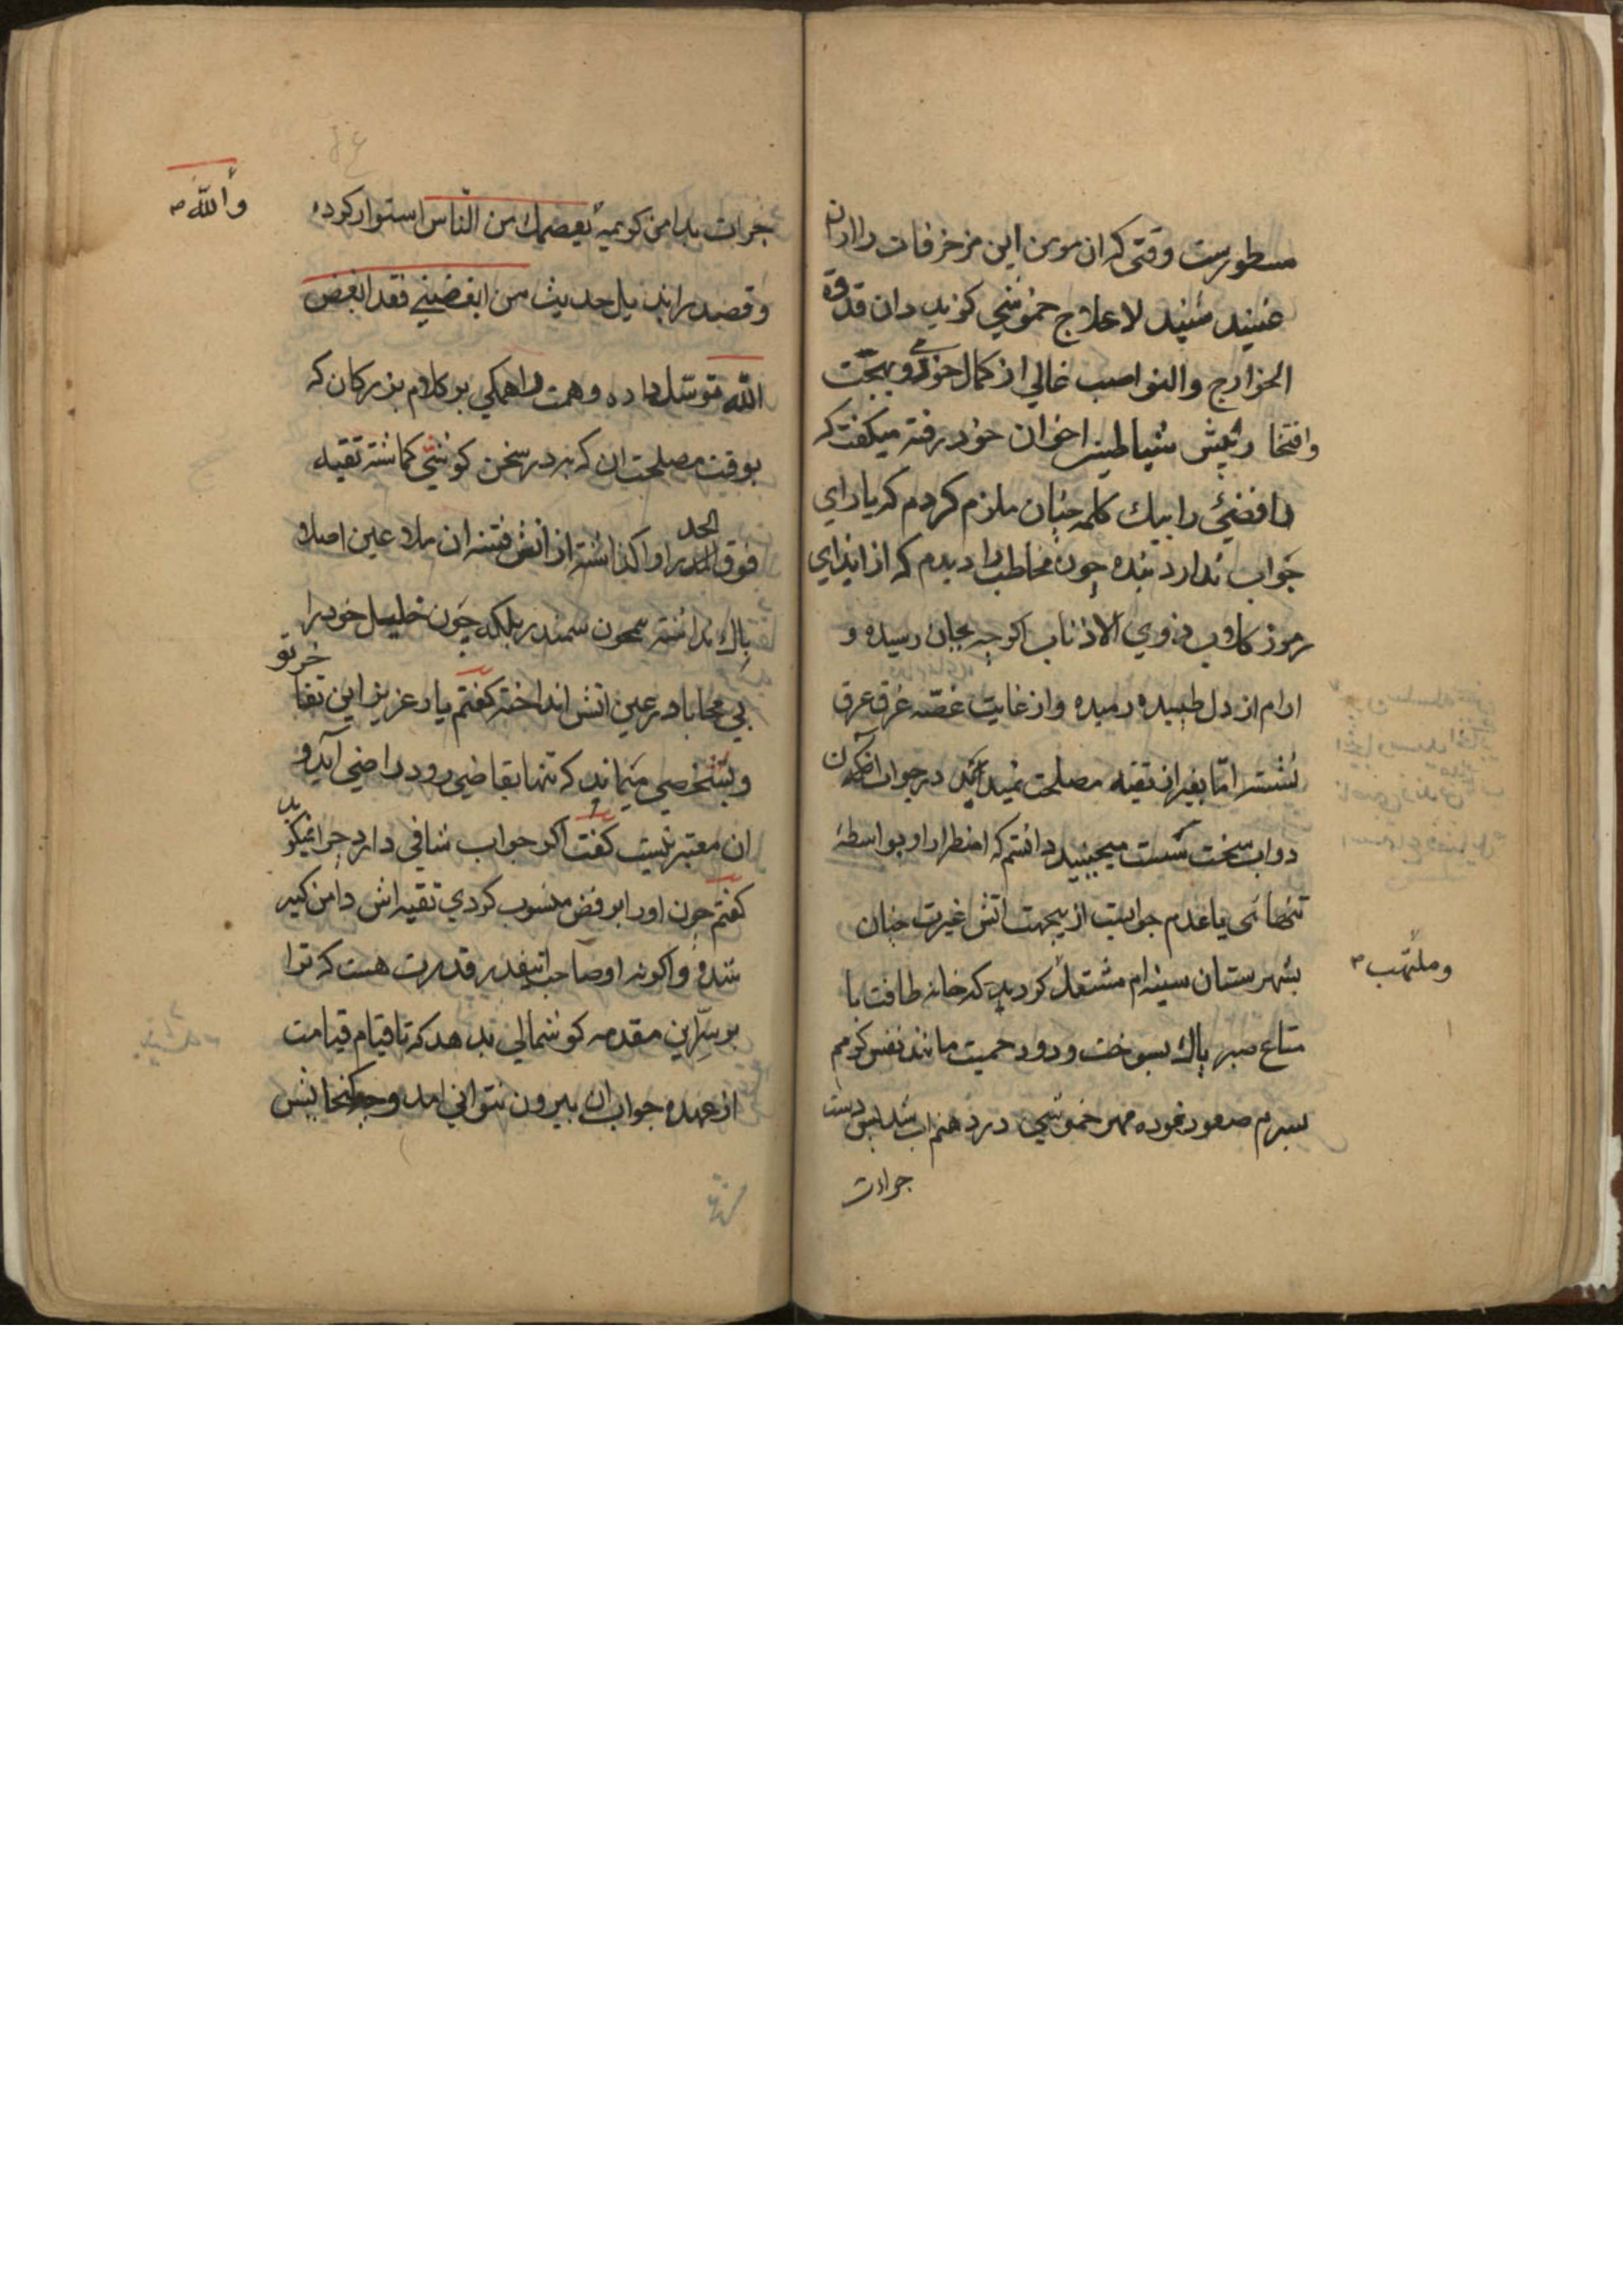 مسطورست وقتی که ان مومن این مزخرفات را ازان
عنید شنید لا علاج خموشی کزید و ان قدوة
الخوارج والنواصب غالی از کمال خورمی و بهجت
وافتخار پیش شیاطین اخوان خود رفته میکفت که
رافضئ را بیک کلمه چنان ملزم کردم که یارای
جواب ندارد بنده چون مخاطب را دیدم که از ایذای
رموز کاوب ذوی الاذناب اکرچه بجان رسیده و
ارام از دل طپیده رمیده و از غایت غصّه غرق عرق
نشسته امّا بغیر از تقیه مصلحت نمیداند در جواب
دواب سخت سست میجنبید دانستم که اضطرار او بواسطهٔ
تنهائی یا عدم جوابست ازیجهت اتش غیرت چنان
بشهرستان سینه ام مشتعل کردید که خانه طاقت با
وملتهب
متاع صبر پاک بسوخت و دود حمیت مانند نفس کرمم
بسرم صعود نموده مهر خموشی در دهنم اب شد پس دست
جرات
جرات بدامن کریمهٔ یعصمک من الناس استوار کرده
والله
وقصد را بذیل حدیث من ابغضنی فقد ابغض
الله توسّل داده وهمت را همکی بر کلام بزرکان که
بوقت مصلحت ان که به در سخن کوشی کماشته تقیه
فوق الحد را واکذاشته از اتش فتنه ان ملاعین اصلا
باک نداشته سمندر بلکه چون خلیل خود را
بی محابا در عین اتش انداخته کفتم یار عزیز این تفاخر تو
وبشخصی میماند که تنها بقاضی رود راضی آید و
ان معتبر نیست کفت اکر جواب شافی دارد چرا نمیکوید
کفتم چون اورا برفض منسوب کردی تقیه اش دامن کیر
شده واکر نه او صاحب اینقدر قدرت هست که ترا
بر سر این مقدمه کوشمالی بدهد که تا قیام قیامت
از عهده جواب ان بیرون نتوانی امد وجه کنجایش